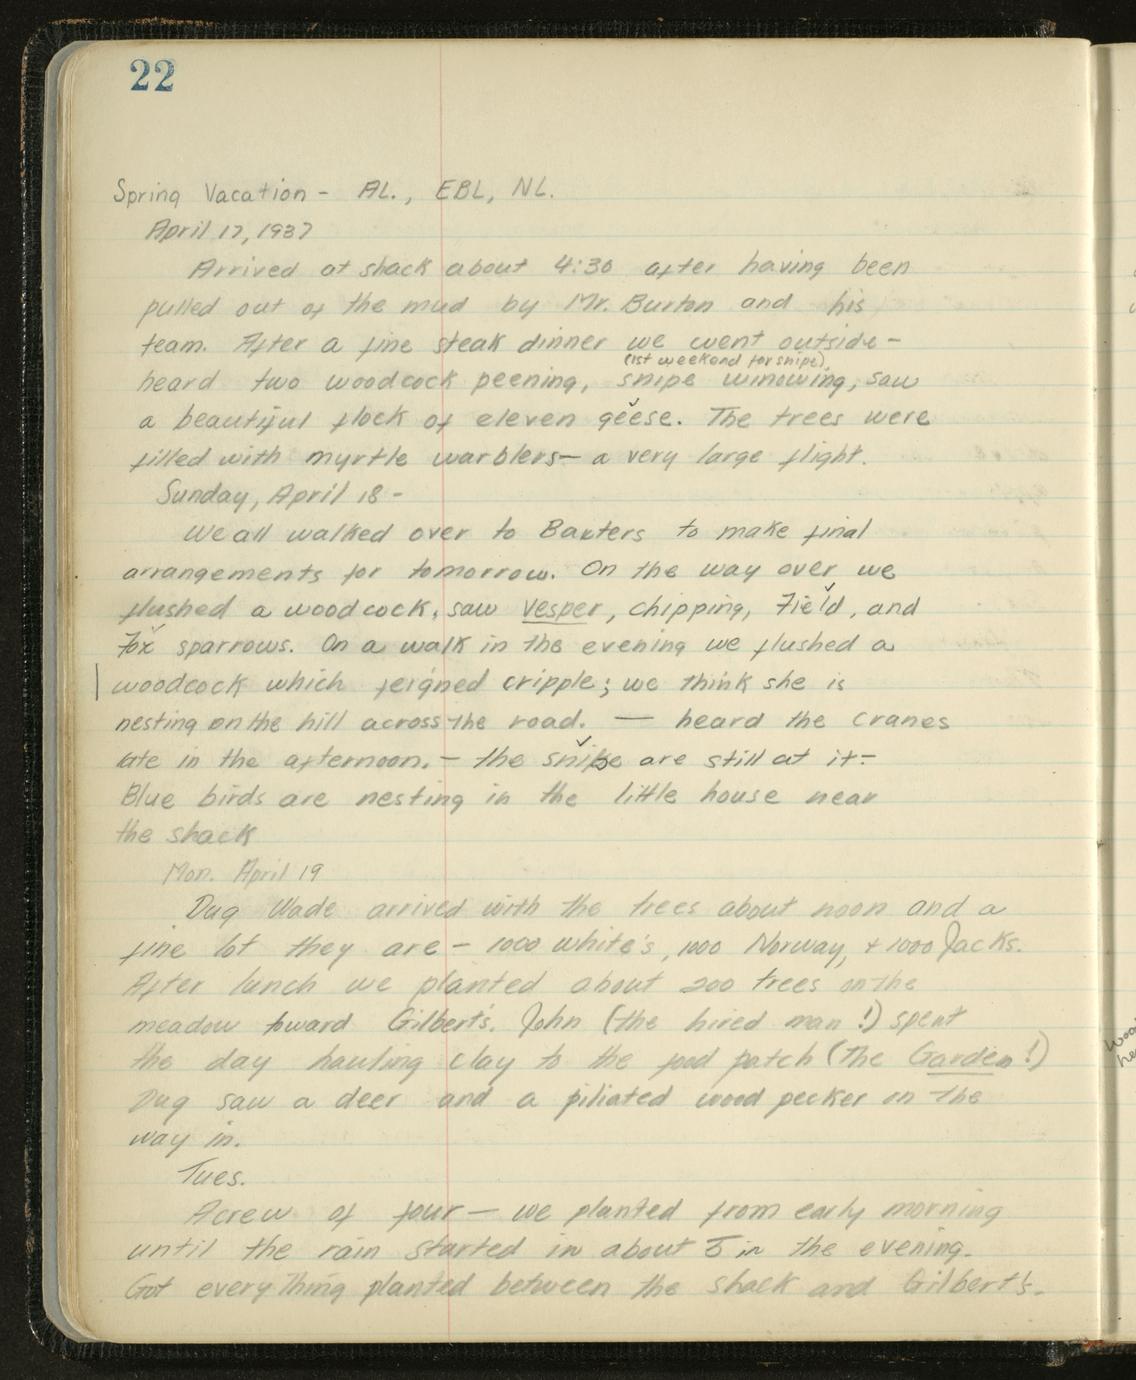 22
Spring Vacation - AL., EBL, NL.
April 17, 1937
Arrived at shack about 4:30 after having been
pulled out of the mud by Mr. Burton and his
team. After a fine steak dinner we went outside -
(1st weekend for snipe)
heard two woodcock peening, snipe winowing, saw
a beautiful flock of eleven geese. The trees were
filled with myrtle warblers - a very large flight.
Sunday, April 18 -
We all walked over to Baxters to make final
arrangements for tomorrow. On the way over we
flushed a woodcock, saw vesper, chipping, Field, and
Fox sparrows. On a walk in the evening we flushed a
woodcock which feigned cripple; we think she is
nesting on the hill across the road. — heard the cranes
late in the afternoon. - the snipe are still at it -
Blue birds are nesting in the little house near
the shack
Mon. April 19
Dug Wade arrived with the trees about noon and a
fine lot they are - 1000 white's, 1000 Norway, + 1000 Jacks.
After lunch we planted about 200 trees on the
meadow toward Gilbert's. John (the hired man!) spent
the day hauling clay to the food patch (The Garden!)
Dug saw a deer and a piliated wood pecker on the
way in.
Tues.
A crew of four — we planted from early morning
until the rain started in about 5 in the evening.
Got every thing planted between the shack and Gilbert's.